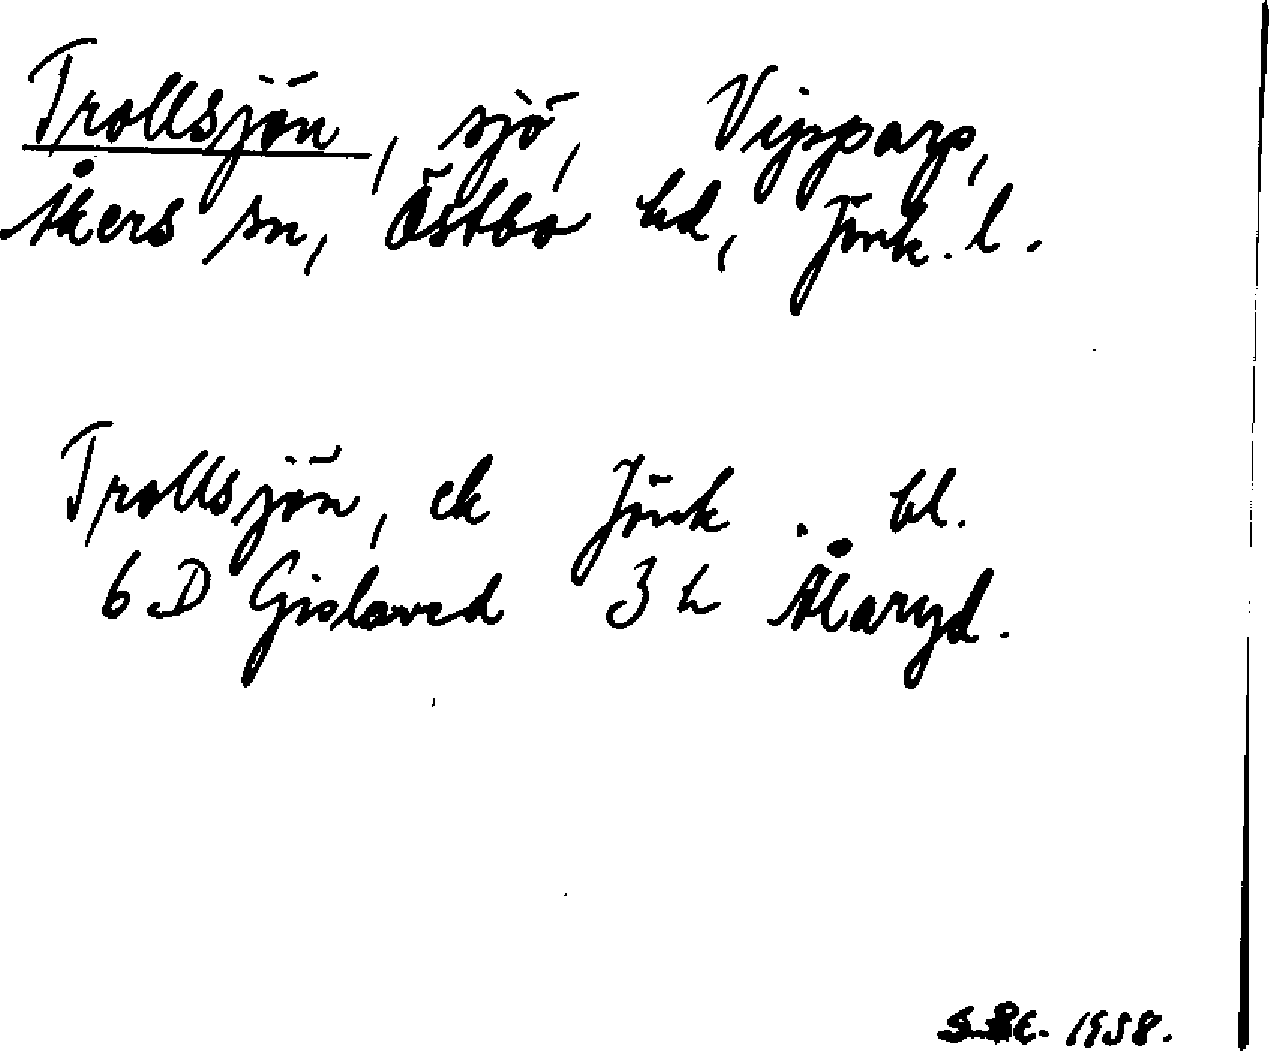 Trollsjön, sjö, Vipparp,
Åkers sn, Östbo hd, Jönk. l.
Trollsjön, ek Jönk. bl.
6 D Gislaved 3 h Ålaryd.
1958.